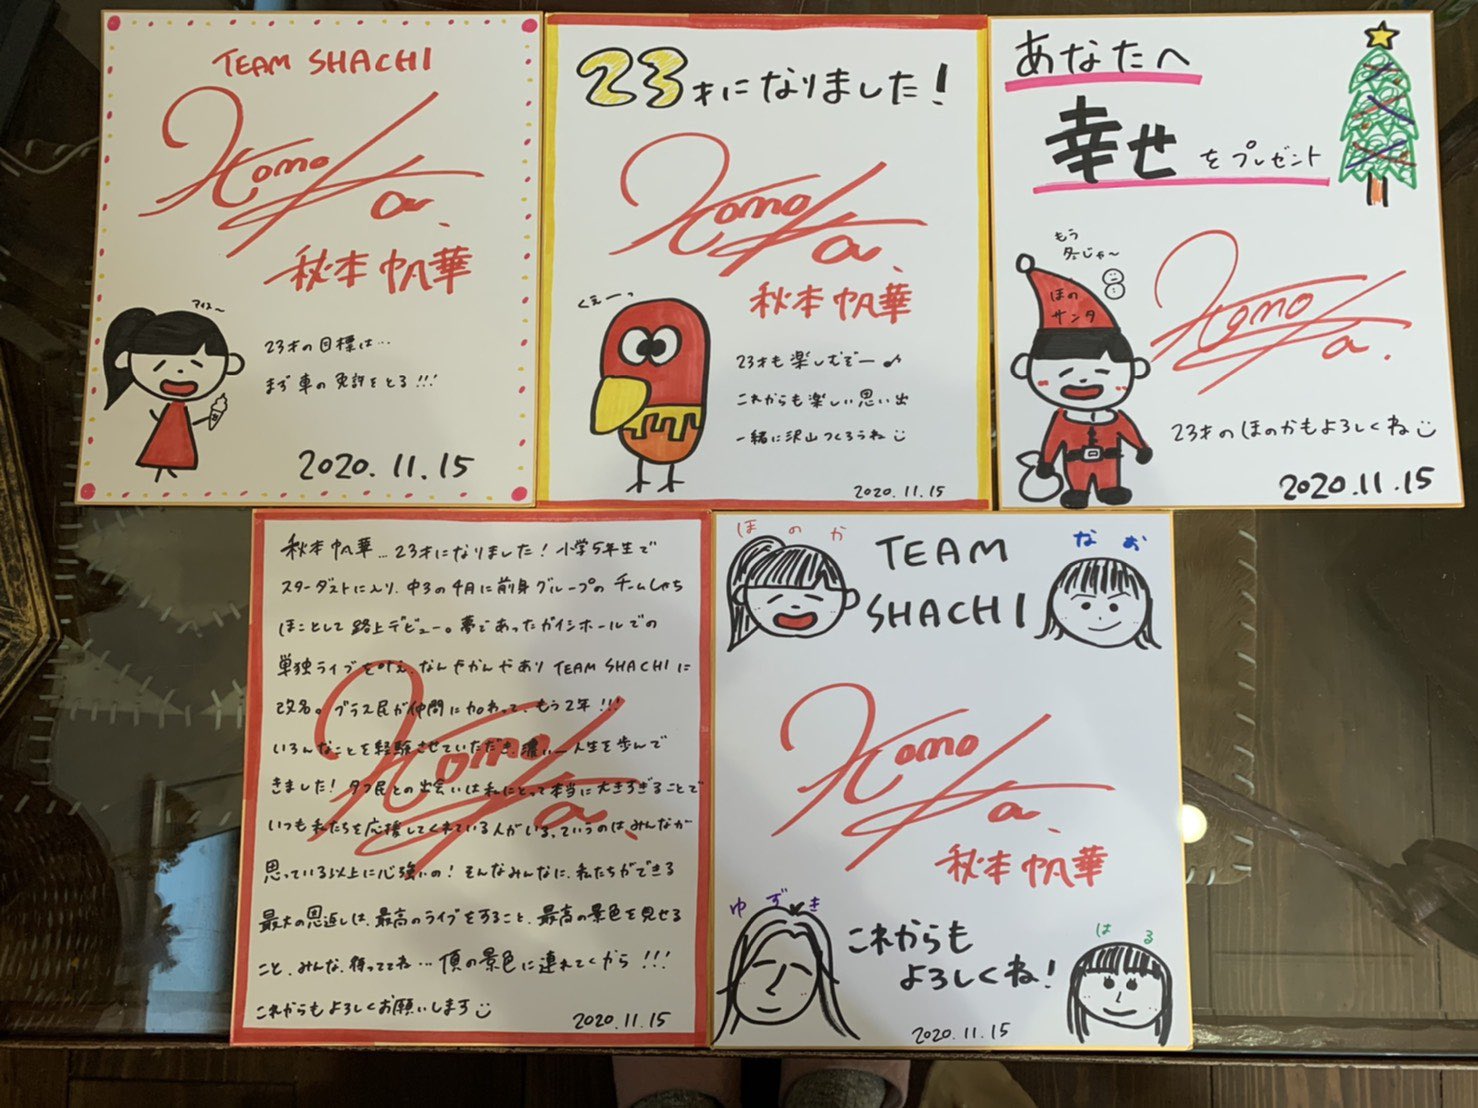 TEAM SHACHI
Honoka.
秋本帆華
アイス〜
23才の目標は…
まず車の免許をとる!!!
2020.11.15
23才になりました!
Honoka.
秋本帆華
くえーっ
23才も楽しむぞー♪
これからも楽しい思い出
一緒に沢山つくろうね
2020.11.15
あなたへ
幸せをプレゼント
もう
冬じゃ〜
ほの
サンタ
Honoka.
23才のほのかもよろしくね
2020.11.15
秋本帆華…23才になりました!小学5年生で
スターダストに入り、中3の4月に前身グループのチームしゃち
ほことして路上デビュー。夢であったガイシホールでの
単独ライブを叶え、なんやかんやあり TEAM SHACHIに
改名。ブラス民が仲間に加わって、もう2年!!!
いろんなことを経験させていただき濃いー人生を歩んで
きました!タフ民との出会いは私にとって本当に大きすぎることで
いつも私たちを応援してくれている人がいる、ていうのは、みんなが
思っている以上に心強いの!そんなみんなに、私たちができる
最大の恩返しは、最高のライブをすること、最高の景色を見せる
こと、みんな、待っててね…頂の景色に連れてくから!!!
これからもよろしくお願いします
Honoka.
2020.11.15
ほのか
TEAM
SHACHI
なお
Honoka.
秋本帆華
ゆずき
これからも
よろしくね!
はる
2020.11.15